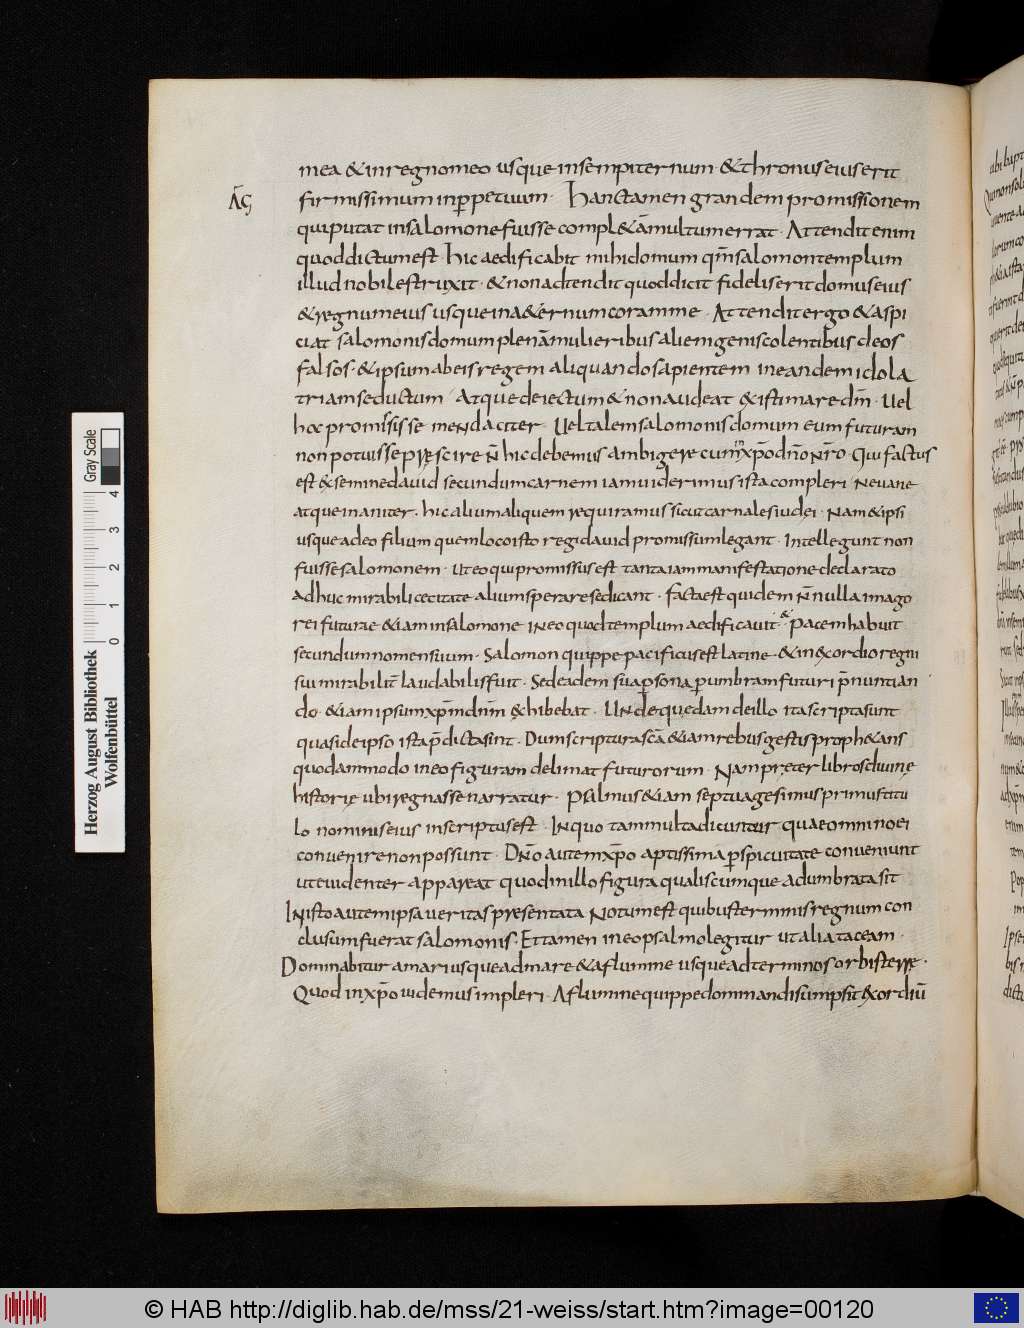 mea & in regno meo usque in sempiternum · & thronus eius erit
AḠ
firmissimum in p̱petuum · Hanc tamen grandem promissionem
qui putat in salomone fuisse compl&ā multum errat · Attendit enim
quod dictum est · hic aedificabit mihi domum qm̄ salomon templum
illud nobile struxit · & non adtendit quod dicit fidelis erit domus eius
& regnum eius usque in a&ernum coram me · Attendit ergo & aspi
ciat salomonis domum plenā mulieribus alienigenis colentibus deos
falsos · & ipsum ab eis regem aliquando sapientem in eandem idola
triam seductum / Atque deiectum & non audeat existimare dm̄ · Uel
hoc promisisse mendaciter · Uel talem salomonis domum eum futuram
non potuisse pręscire · N̄ hic debemus ambigere cum in xp̄o dn̄o nr̄o · Qui factus
est ex semine dauid secundum carnem iam uiderimus ista compleri · Ne uane
atque inaniter · hic alium aliquem requiramus sicut carnales iudei · Nam & ipsi
usque adeo filium quem loco isto regi dauid promissum legant · Intellegunt non
fuisse salomonem · ut eo qui promissus est tanta iam manifestatione declarato
adhuc mirabili cecitate alium sperare se dicant · facta est quidem n̄ nulla imago
rei futurae &iam in salomone in eo quod templum aedificauit · & pacem habuit
secundum nomen suum · Salomon quippe pacificus est latine · & in exordio regni
sui mirabilit̄ laudabilis fuit · Sed eadem sua p̱sona p̱ umbram futuri p̄nuntian
do · &iam ipsum xp̄m dnm̄ exhibebat · Unde quędam de illo ita scripta sunt
quasi de ipso ista p̄dicta sint · Dum scriptura scā &iam rebus gestis proph&ans
quodammodo in eo figuram delineat futurorum · Nam pręter libros diuinę
historię ubi regnasse narratur · Psalmus &iam septuagesimus primus titu
lo nominis eius inscriptus est · In quo tam multa dicuntur quae omnino ei
conuenire non possunt · Dn̄o autem xp̄o aptissima p̱spicuitate conueniunt
ut euidenter appareat quod in illo figura qualiscumque adumbrata sit
In isto autem ipsa ueritas presentata · Notum est quibus terminis regnum con
clusum fuerat salomonis · Et tamen in eo psalmo legitur ut alia taceam ·
Dominabitur a mari usque ad mare & a flumine usque ad terminos orbis terrę ·
Quod in xp̄o uidemus impleri · A flumine quippe dominandi sumpsit exordiū
Herzog August Bibliothek
Wolfenbüttel
Gray Scale
0 1 2 3 4
© HAB http://diglib.hab.de/mss/21-weiss/start.htm?image=00120